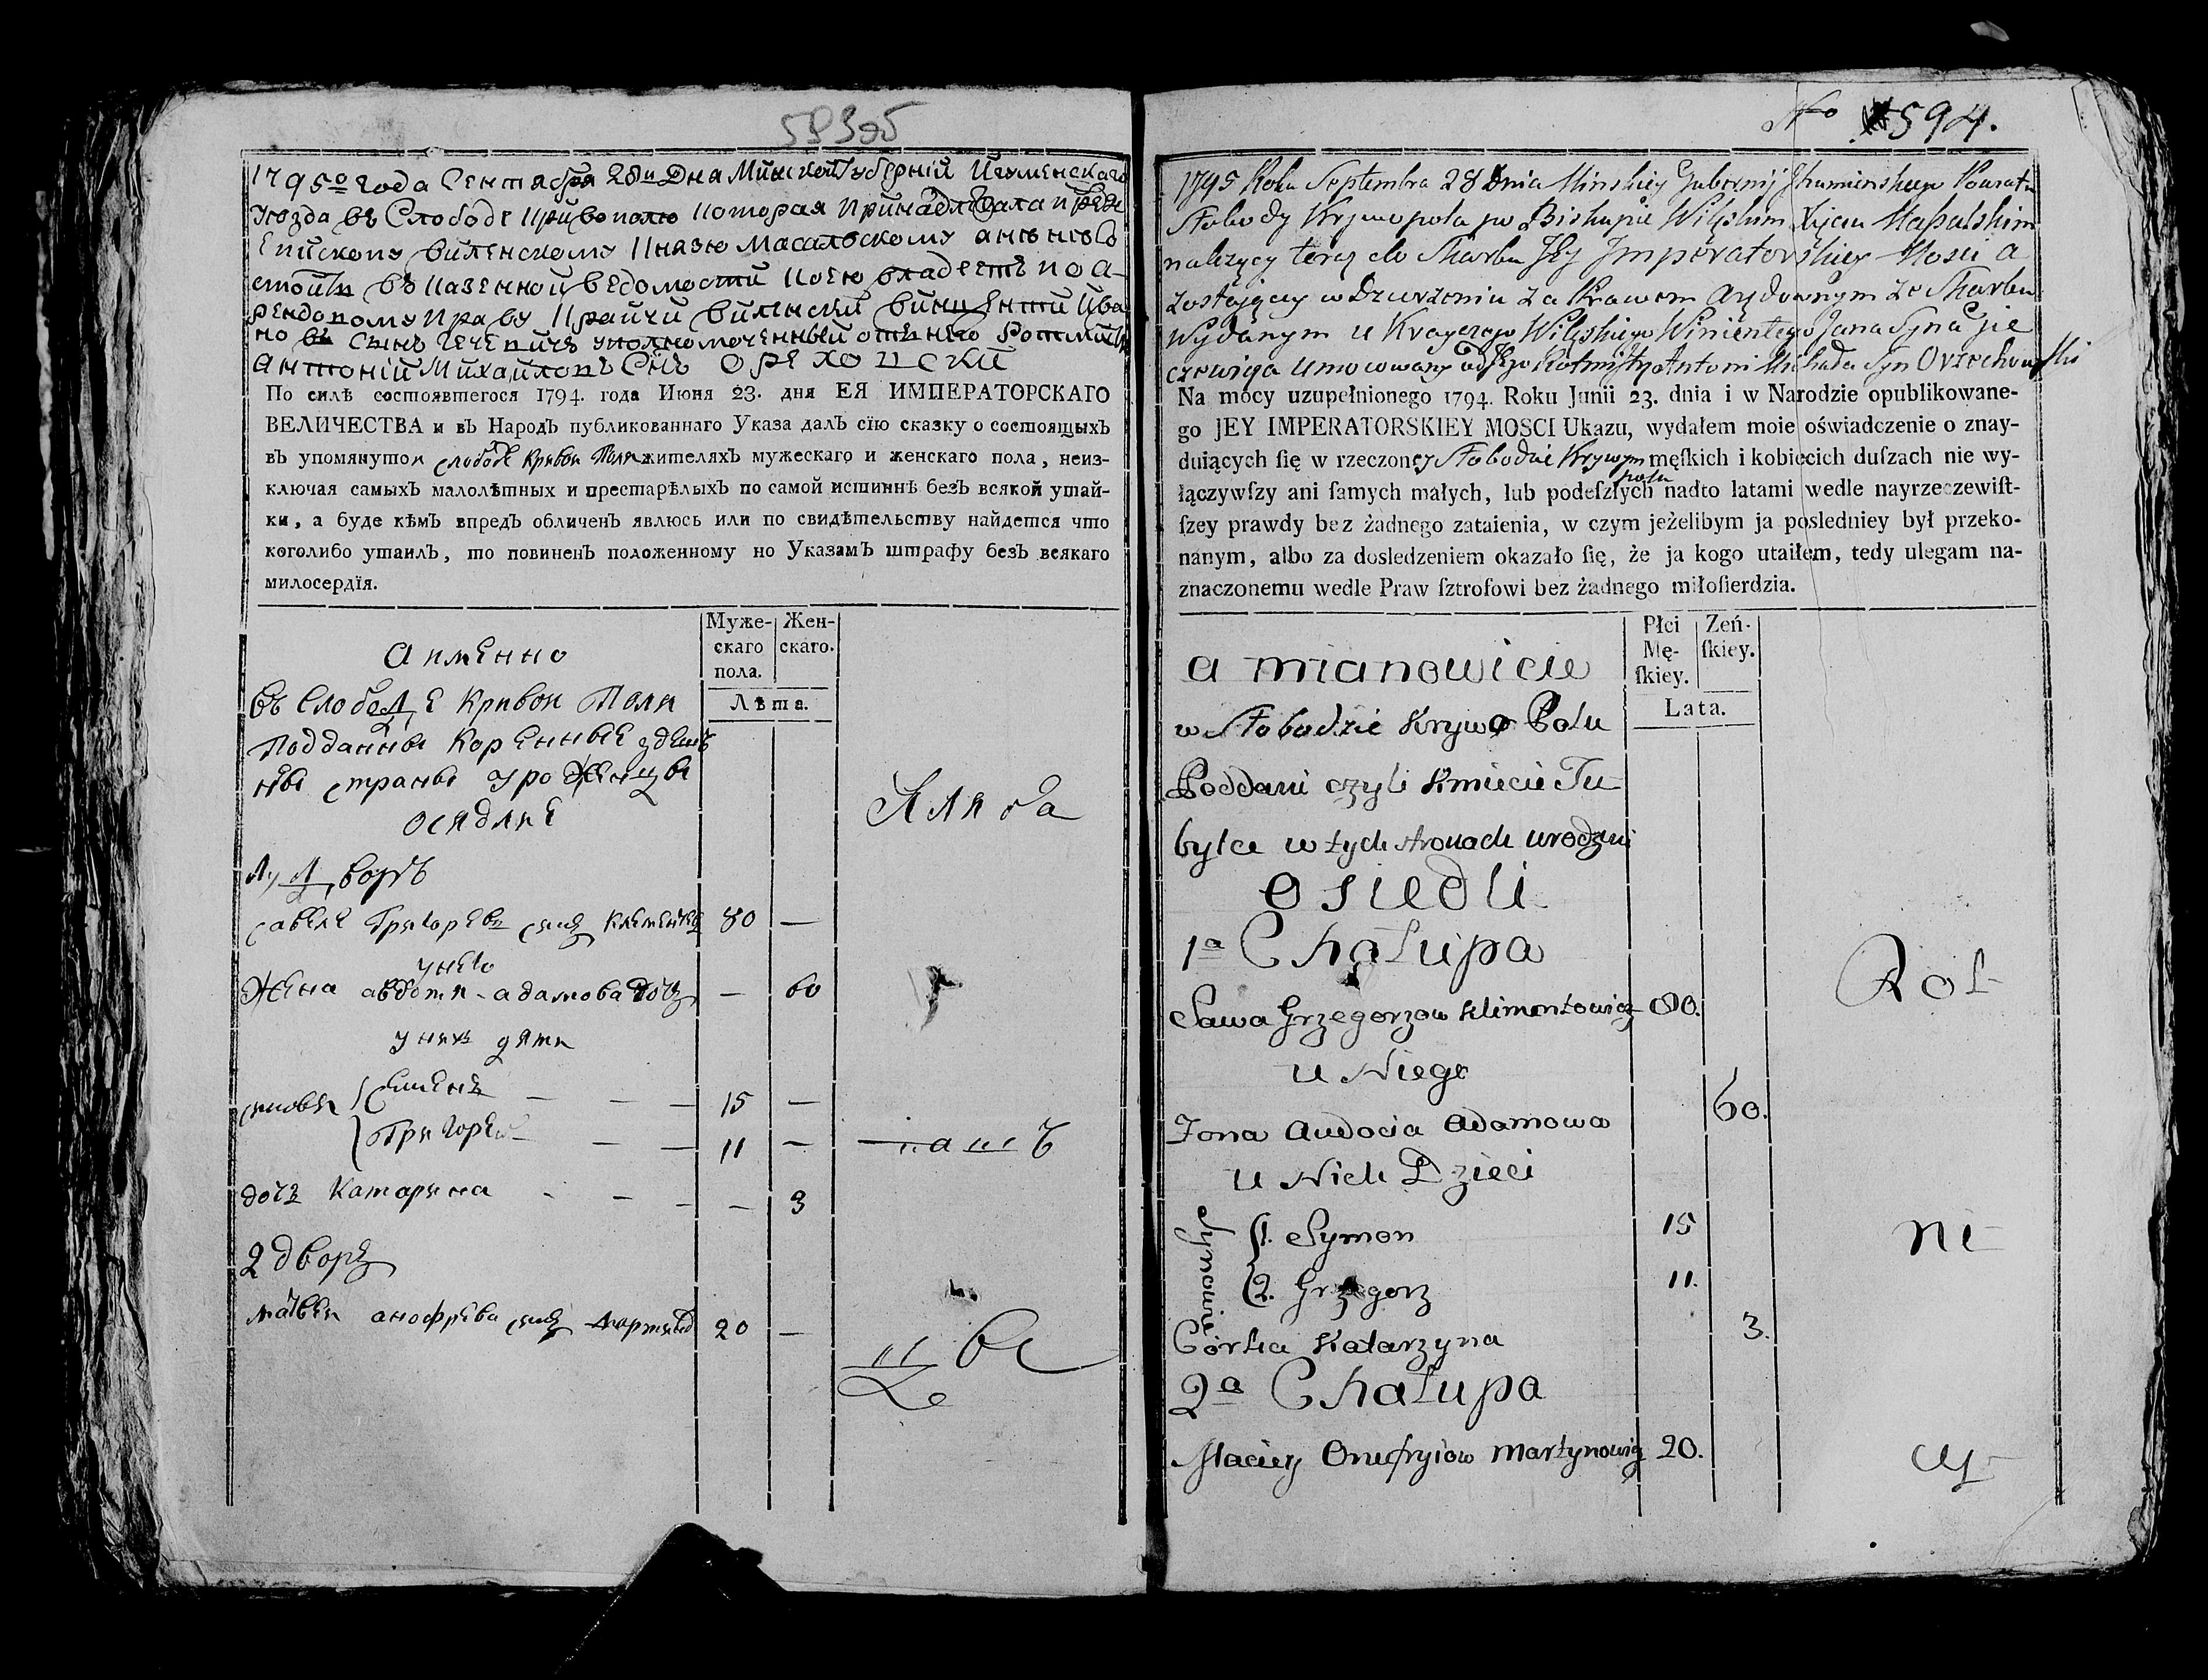 593об
1795го года Сентября 28и Дна Минской Губерній Йгуменскаго
Уѣзда въ Слободе Кривополю которая принадлежала преж
Епйскопу виленскому Князю Масальскому а нынѣ Со
стойтъ въ Казенной ведомости коею владеетъ по а-
рендовому праву Крайчи виленский винцентий Ива
новъ Сынъ уполномоченный отъ него Ротмистр
Антоній Михайловъ Снъ Ореховски
По силѣ состоявшегося 1794. года Июня 23. дня ЕЯ ИМПЕРАТОРСКАГО
ВЕЛИЧЕСТВА и въ Народъ публикованнаго Указа далъ сїю сказку о состоящыхъ
въ упомянутой слободе Кривом Поля жителяхъ мужескаго и женскаго пола, неиз-
ключая самыхъ малолѣтных и престарѣлыхъ по самой истиннѣ безъ всякой утай-
ки, а буде кѣмъ впредъ обличенъ явлюсь или по свидѣтельству найдется что
коголибо утаилъ, то повиненъ положенному по Указамъ штрафу безъ всякаго
милосердїя.
Муже-
скаго
пола.
Жен-
скаго.
Лѣта.
а именно
въ Слободе Кривом Поли
Подданные коренные здеш
ны страны уроженцы
оседлие
1й дворъ
савеле Григоревъ сынъ 80 —
у него
Жена авдотя адамова дочъ — 60
у них дети
сыновя Сименъ — — — 15 —
Григорей — — — 11 —
дочъ Катарина - — — — 3
2 дворъ
матвеи анофрева сынъ 20 —
No 594.
1795 Roku Septembra 28 Dnia Minskiey Gubernij Ihumienskiego Powiatu
Słobody Krywopola po Biskupie Wileńskim Xięciu Massalskim
należący teraz do Skarbu Jey Imperatorskiey Mosci a
zostający w Dzierżeniu za Prawem Arędownym ze Skarbu
Wydanym u Krayczego Wileńskiego Wincentego Jana Syna Gie
czewicza Umocowany od Jego Rotmistrz Antoni Michała Syn Orzechowski
Na mocy uzupełnionego 1794. Roku Junii 23. dnia i w Narodzie opublikowane-
go JEY IMPERATORSKIEY MOSCI Ukazu, wydałem moie oświadczenie o znay-
duiących ſię w rzeczoney Słobodzie Krywym polu męſkich i kobiecich duſzach nie wy-
łączywſzy ani ſamych małych, lub podeſzłych nadto latami wedle nayrzeczewiſt-
ſzey prawdy bez żadnego zataienia, w czym jeżelibym ja posledniey był przeko-
nanym, albo za dosledzeniem okazało ſię, że ja kogo utaiłem, tedy ulegam na-
znaczonemu wedle Praw ſztrofowi bez żadnego miłoſierdzia.
Płci
Mę-
ſkiey.
Zeń-
ſkiey.
Lata.
a mianowicie
w Słobodzie Krywo Polu
Poddani czyli Kmiecie Tu
bylce w tych stronach urodzeni
osiedli
1a Chałupa
Sawa Grzegorzow Klimentowicz 80.
u Niego
Zona Audocia Adamowa 60.
u Nich Dzieci
Synowie
1. Symon 15
2. Grzegorz 11.
Córka Katarzyna 3.
2a Chałupa
Maciey Onufryiow Martynowicz 20.